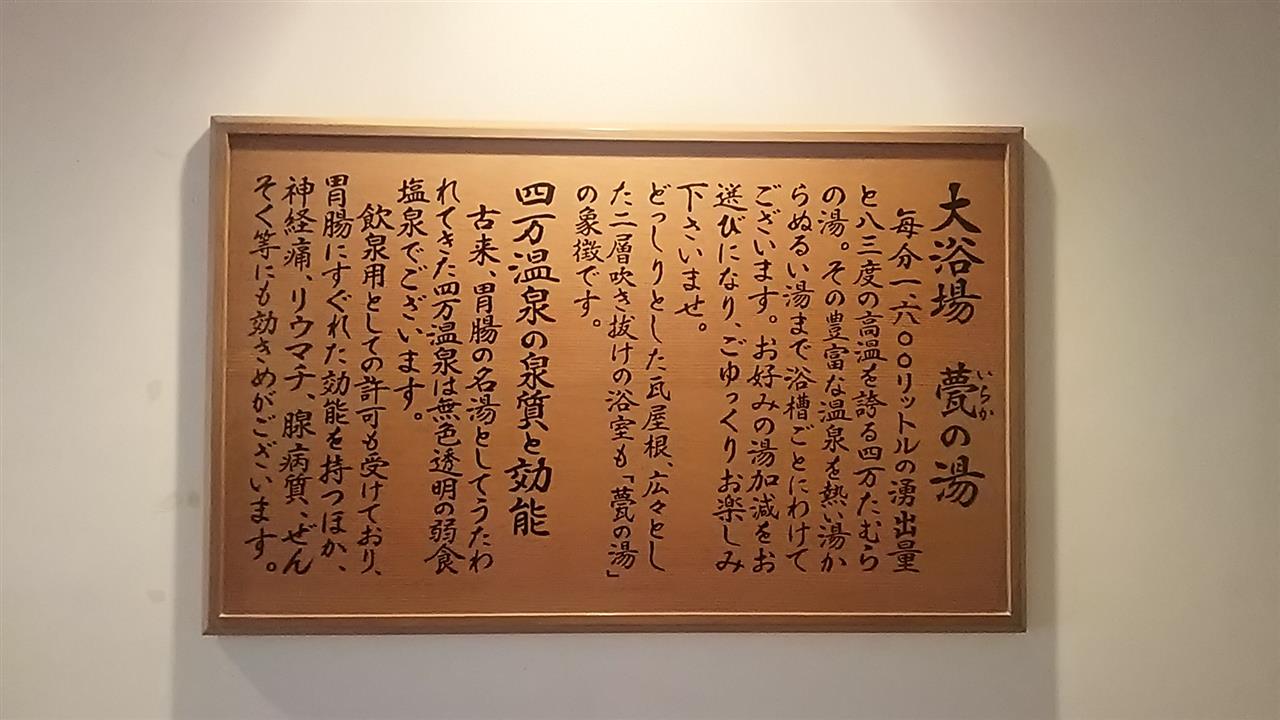 大浴場 甍の湯
いらか
毎分一、六〇〇リットルの湧出量
と八三度の高温を誇る四万たむら
の湯。その豊富な温泉を熱い湯か
らぬるい湯まで浴槽ごとにわけて
ございます。お好みの湯加減をお
選びになり、ごゆっくりお楽しみ
下さいませ。
どっしりとした瓦屋根、広々とし
た二層吹き抜けの浴室も「甍の湯」
の象徴です。
四万温泉の泉質と効能
古来、胃腸の名湯としてうたわ
れてきた四万温泉は無色透明の弱食
塩泉でございます。
飲泉用としての許可も受けており、
胃腸にすぐれた効能を持つほか、
神経痛、リウマチ、腺病質、ぜん
そく等にも効きめがございます。